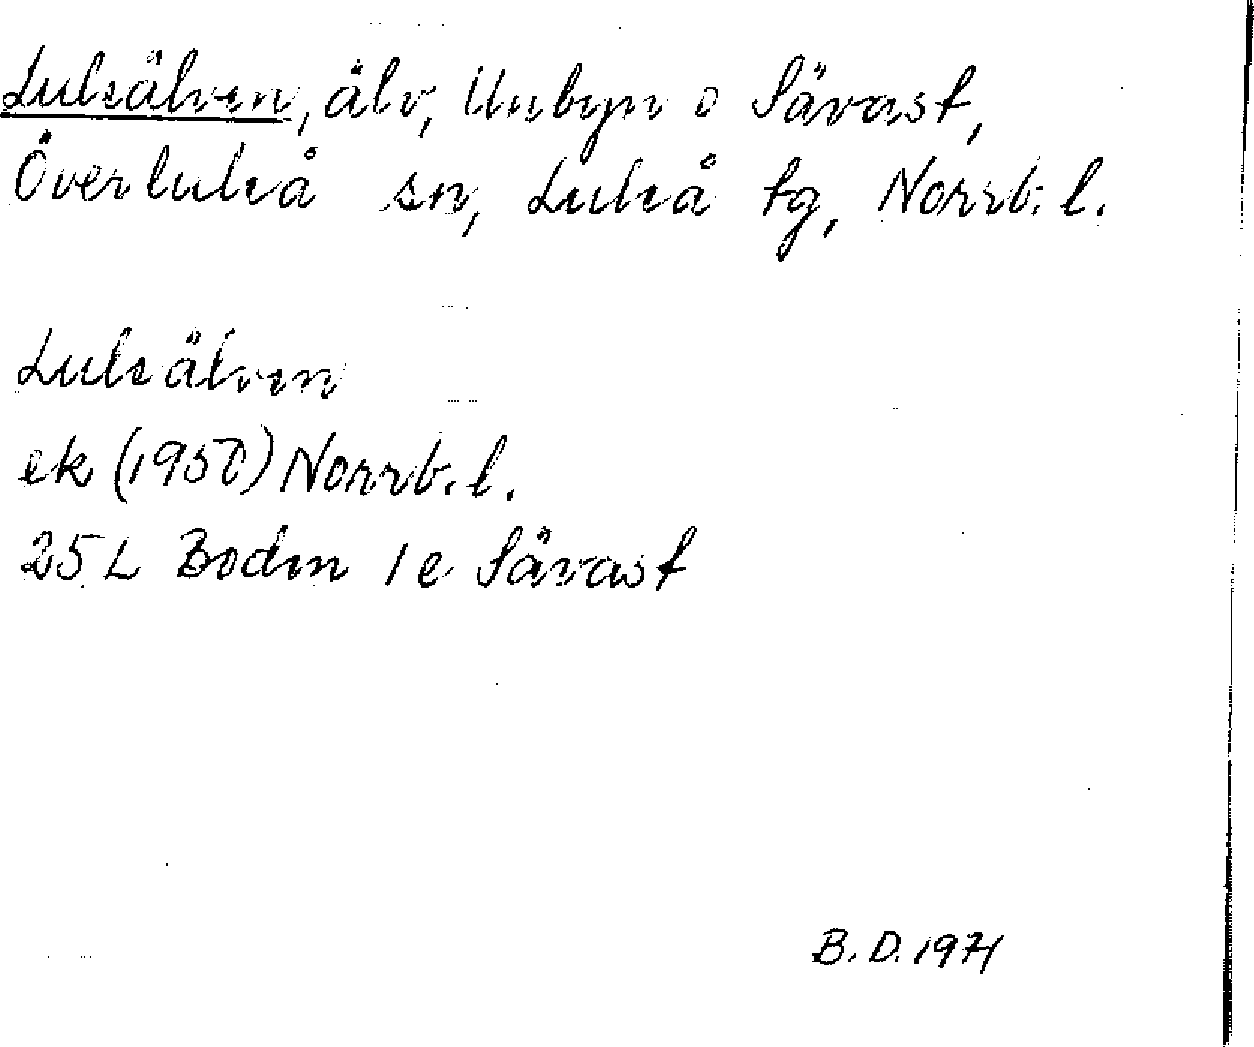 Luleälven, älv, Unbyn o Sävast,
Överluleå sn, Luleå tg, Norrb. l.
Luleälven
ek (1950) Norrb. l.
25 L Boden 1 e Sävast
B. D. 1971